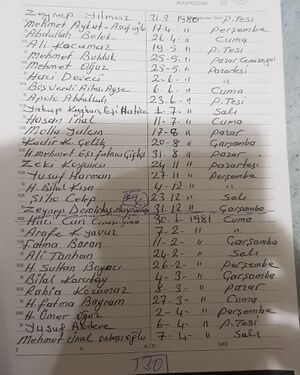 Zeynep Yılmaz 31-3-1980 P.Tesi
Mehmet Aykut - Azab 17-4- " Perşembe
Abdullah Belet 26-4- " Cuma
Ali Kocamaz 19-5- " P.Tesi
Mehmet Bulduk 25-5- " Pazar
Mehmet Oğuz 25-5- " Pazartesi
Haci Deveci 2-6- " "
6-6- " Cuma
Apalı Abdullah 23-6- " P.Tesi
Yakup Kayhan Eşi Hatice 1-7- " Salı
Hasan İnal 11-7- " Cuma
Molla Yalçın 17-8- " Pazar
Kadir K. Çelik 20-8- " Çarşamba
H. Mehmet Eşi Fatma Çiftçi 31-8 " Pazar
Zeki Koyuncu 24-11 " Pazartesi
Yusuf Harman 27-11 " Perşembe
H. Bilal Kısa 4-12 " "
Celep 23-12 " Salı
Zeynep Demirtaş 31.12 " Çarşamba
Hacı Cuma 30-1-1981 Cuma
Arafe Kyavuz 7-2- " "
Fatma Baran 11-2- " Çarşamba
Ali Tanhan 24-2- " Salı
H. Sultan Boyacı 26-2- " Perşembe
Bilal Karatay 4-3- " Çarşamba
Rabia Kocamaz 8-3- " Pazar
H. Fatma Bayram 27-3- " Cuma
H. Ömer Oğuz 2-4- " Perşembe
Yusuf Akdeve 6-4- " P.Tesi
Mehmet Ünal Onbaşıoğlu 7-4- " Salı